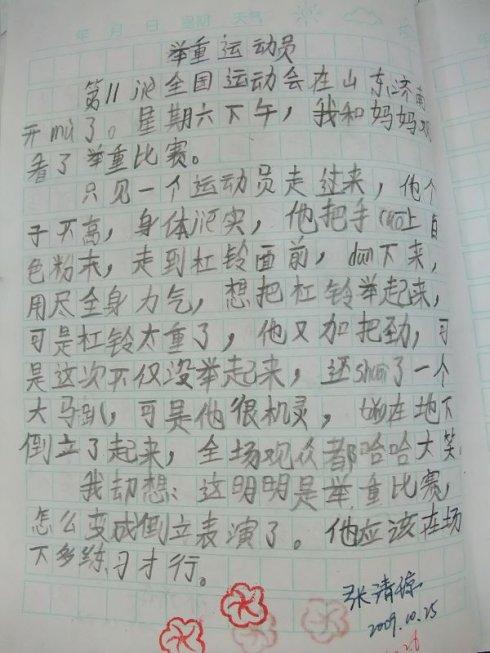 年 月 日 星期 天气
举重运动员
第11jiè全国运动会在山东济南
开mù了。星期六下午，我和妈妈观
看了举重比赛。
只见一个运动员走过来，他个
子不高，身体jiē实，他把手cā上白
色粉末，走到杠铃面前，dūn下来，
用尽全身力气，想把杠铃举起来，
可是杠铃太重了，他又加把劲，可
是这次不仅没举起来，还shuāi了一个
大马趴，可是他很机灵，在地下
倒立了起来，全场观众都哈哈大笑
我却想：这明明是举重比赛，
怎么变成倒立表演了。他应该在场
下多练习才行。
2009.10.25